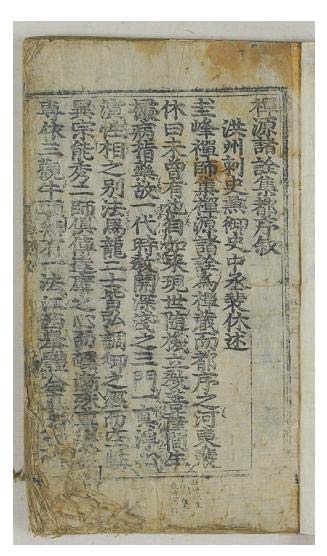 禪源諸詮集都序叙
洪州刺史兼御史中丞裴休述
圭峰禪師集禪源諸詮爲禪藏而都序之河東裴
休曰未曾有也自如來現世隨機立教菩薩間生
據病指藥故一代時教開深淺之三門一眞淨心
演性相之别法馬龍二士皆弘調御之經而空性
異宗能秀二師俱傳達摩之心而頓漸殊
專依三觀牛頭 有一法江西 體全